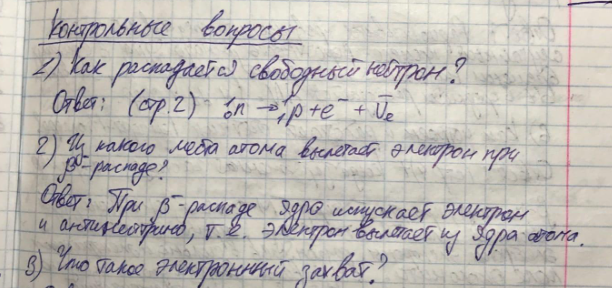 Контрольные вопросы
1) Как распадается свободный нейтрон?
Ответ: (стр. 2) ¹₀n → ¹₁p + e⁻ + ν̄ₑ
2) Из какого места атома вылетает электрон при
β⁻-распаде?
Ответ: При β⁻-распаде ядро испускает электрон
и антинейтрино, т.е. электрон вылетает из ядра атома.
3) Что такое электронный захват?